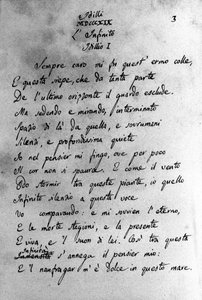 3
Idilli
MDCCCXIX
L' Infinito
Idillio I
Sempre caro mi fu quest' ermo colle,
E questa siepe, che da tanta parte
De l'ultimo orizzonte il guardo esclude.
Ma sedendo e mirando, interminato
Spazio di là da quella, e sovrumani
Silenzi, e profondissima quiete
Io nel pensier mi fingo, ove per poco
Il cor non si spaura. E come il vento
Odo stormir tra queste piante, io quello
Infinito silenzio a questa voce
Vo comparando: e mi sovvien l'eterno,
E le morte stagioni, e la presente
E viva, e 'l suon di lei. Così tra questa
Infinità s' annega il pensier mio:
E 'l naufragar m' è dolce in questo mare.